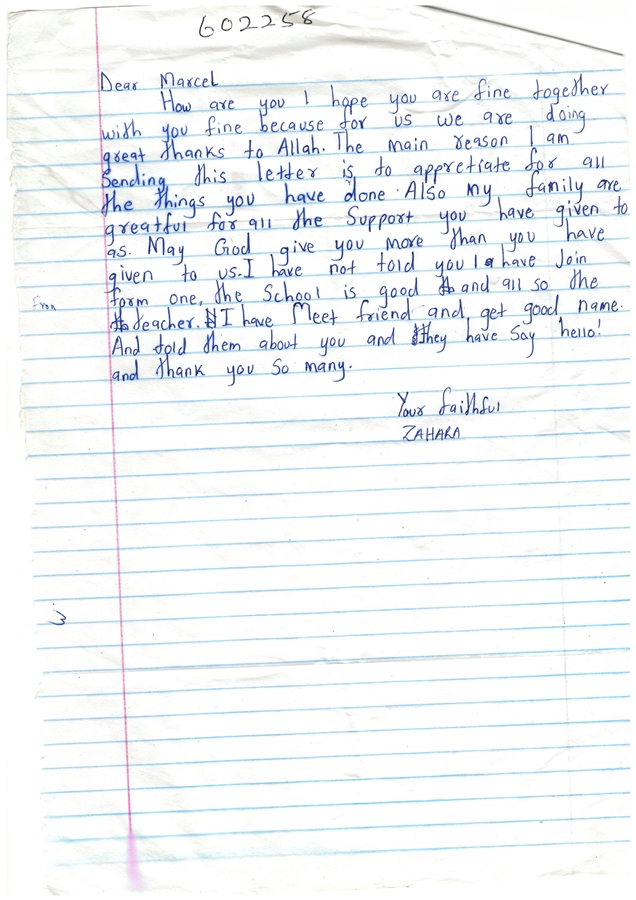 602258
Dear Marcel
How are you I hope you are fine together
with you fine because for us we are doing
great thanks to Allah. The main reason I am
Sending this letter is to appretiate for all
the things you have done. Also my family are
greatful for all the Support you have given to
as. May God give you more than you have
given to us. I have not told you I have Join
form one, the School is good and all so the
teacher. I have Meet friend and, get good name.
And told them about you and they have Say hello!
and thank you So many.
Your faithful
ZAHARA
from
3